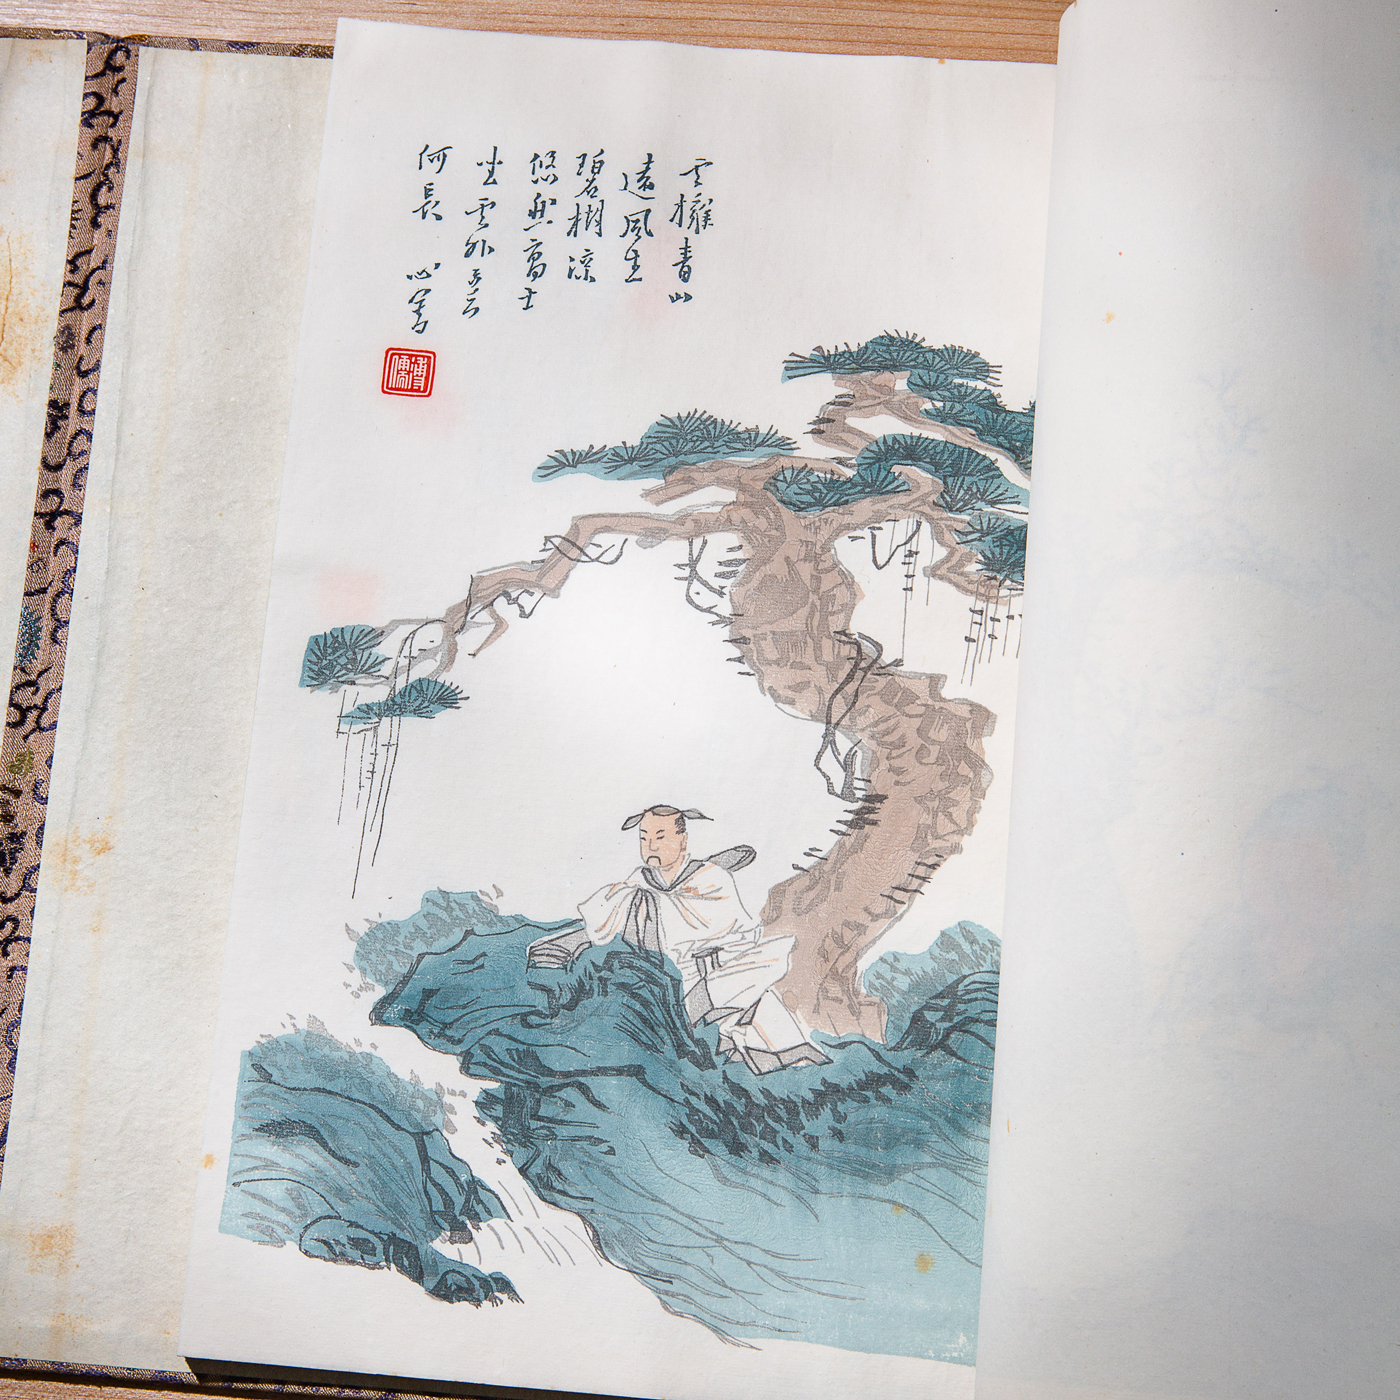 雲擁青山
遠風生
碧樹涼
悠然高士
坐雲外意
何長 心畬
溥儒